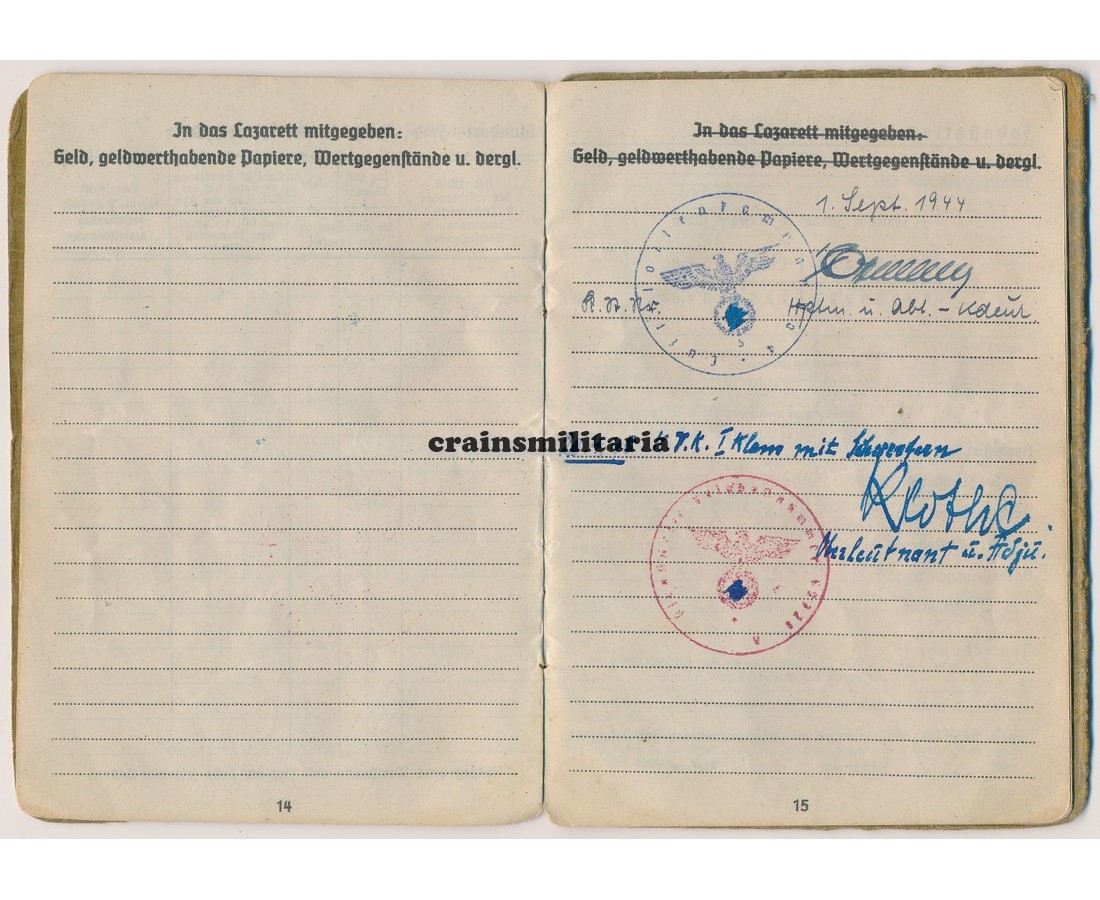 In das Lazarett mitgegeben:
Geld, geldwerthabende Papiere, Wertgegenstände u. dergl.
14
In das Lazarett mitgegeben:
Geld, geldwerthabende Papiere, Wertgegenstände u. dergl.
1. Sept. 1944
Hptm. u. Abt. - Kdeur.
crainsmilitaria
K.V.K. I Klem mit Schwertern
Oberleutnant u. Adju.
15